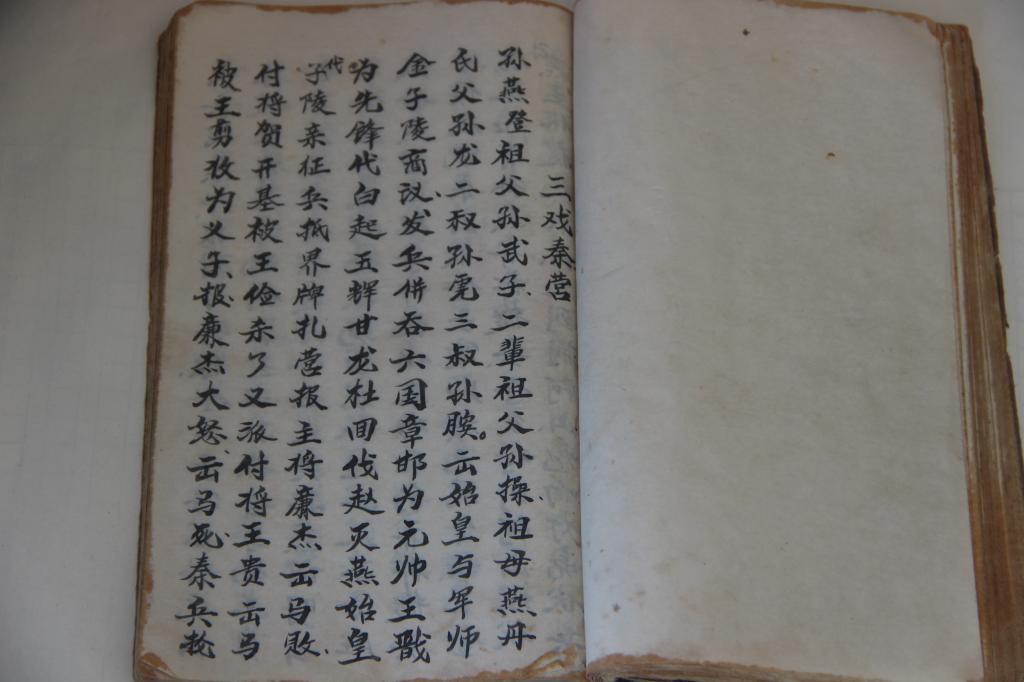 三戏秦营
孙燕登祖父孙武子、二辈祖父孙操、祖母燕丹
氏父孙龙二叔孙虎三叔孙膑。云始皇与军师
金子陵商议、发兵併吞六国章邯为元帅王戬
为先锋代白起五辉甘龙杜回伐赵灭燕始皇
子陵亲征兵抵界牌扎营报主将廉杰云马败、
代
付将贺开基被王俭杀了又派付将王贵云马
被王剪收为义子、报廉杰大怒、云马死秦兵抢